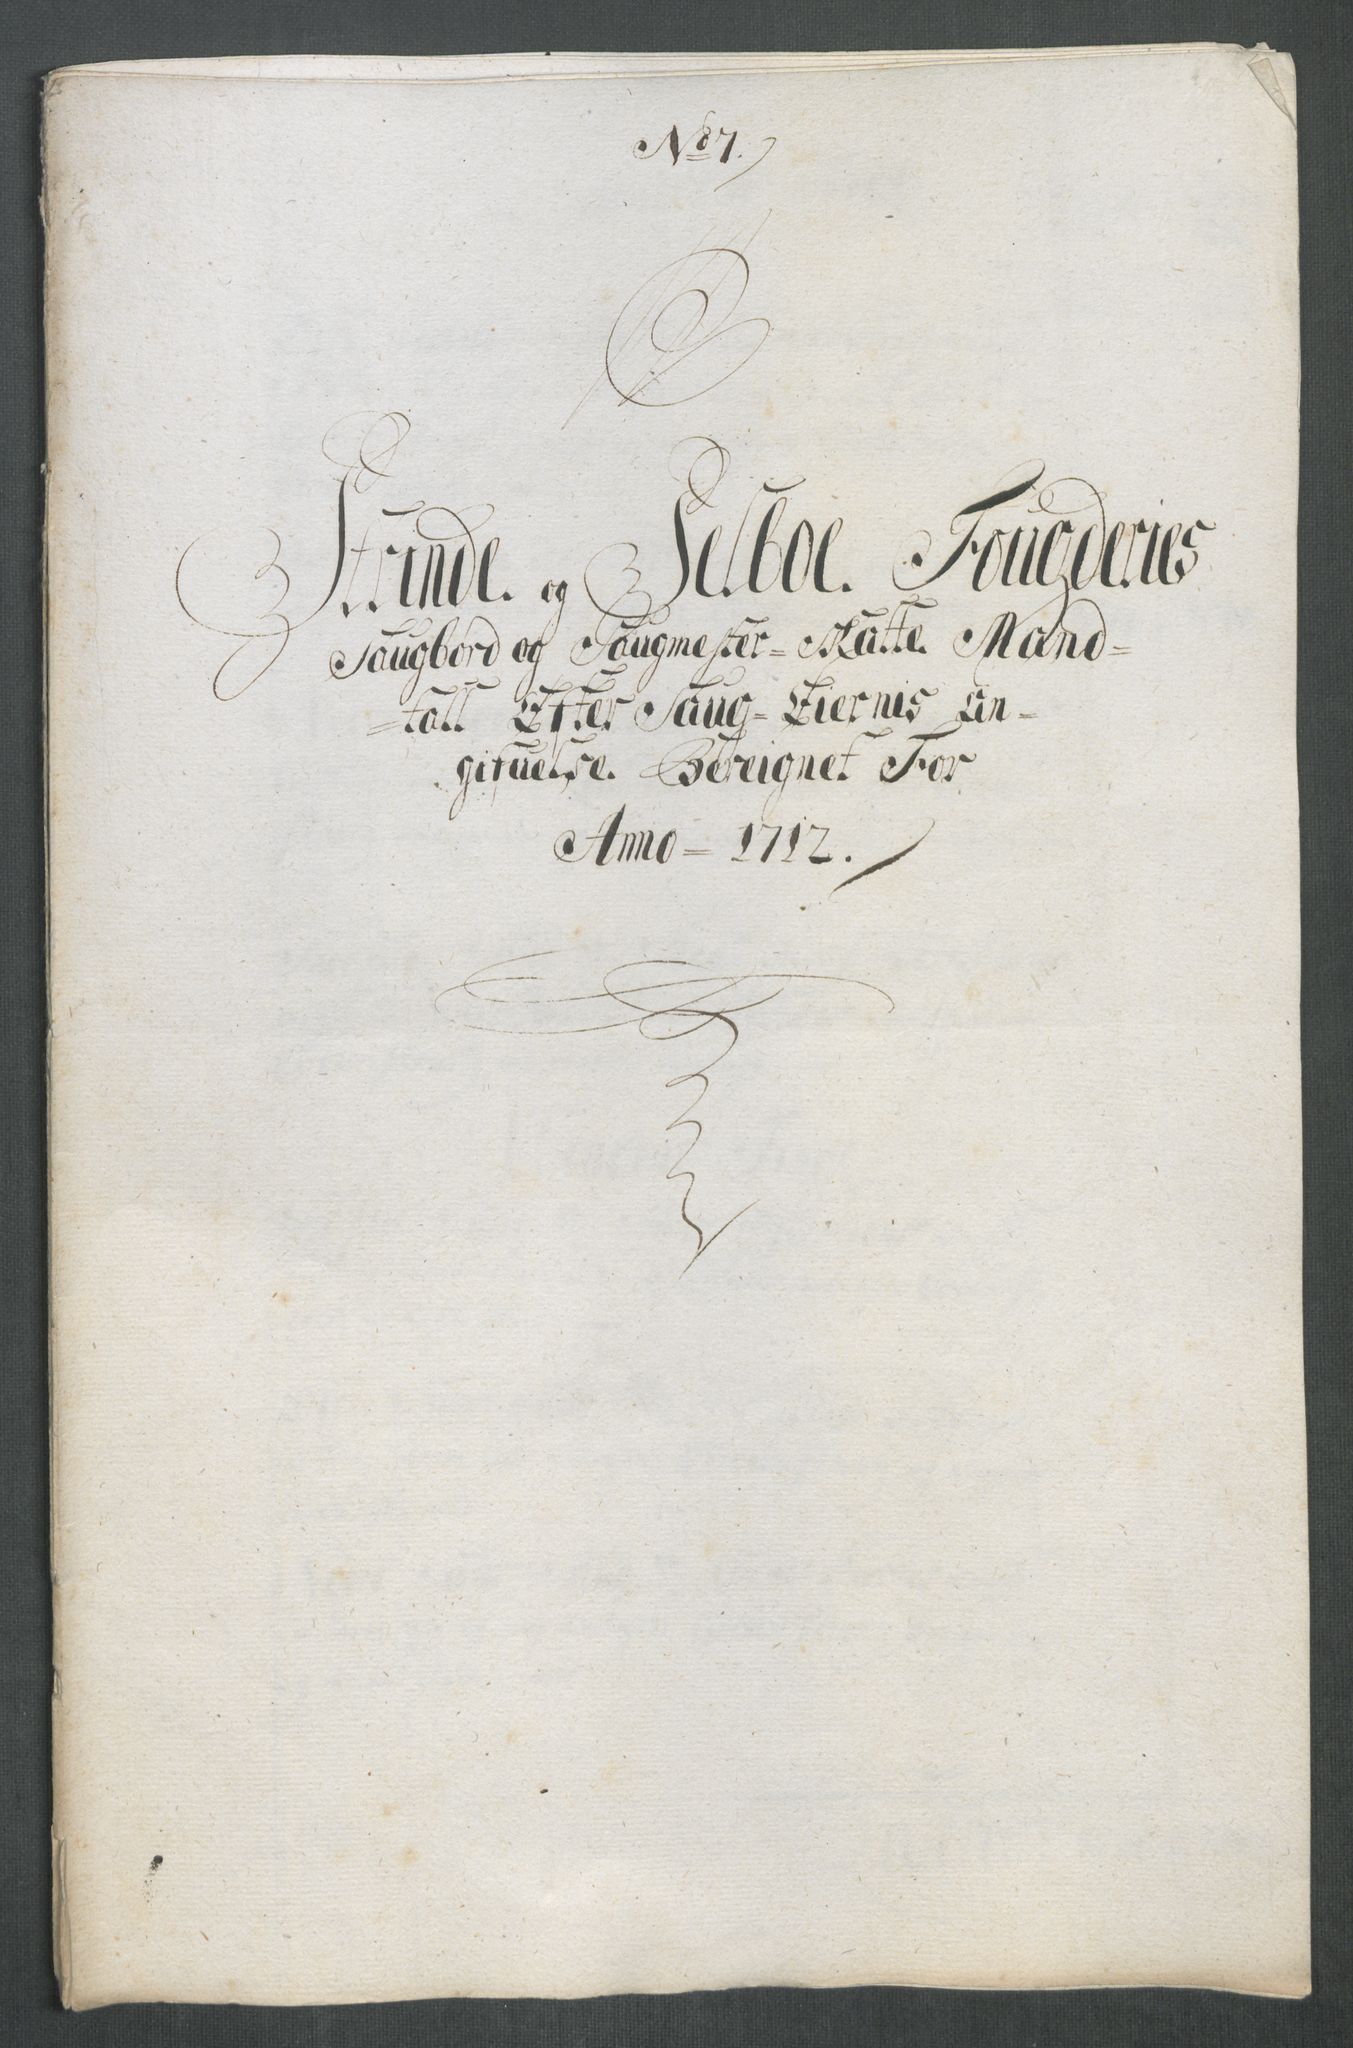 No 7.
Strinde. og Selboe. Fougderies
Saugbord og Saugmester= Skatte. Mand=
=tall Efter Saug= Eiernis An=
gifuelse. Bereignet For
Anno= 1712.